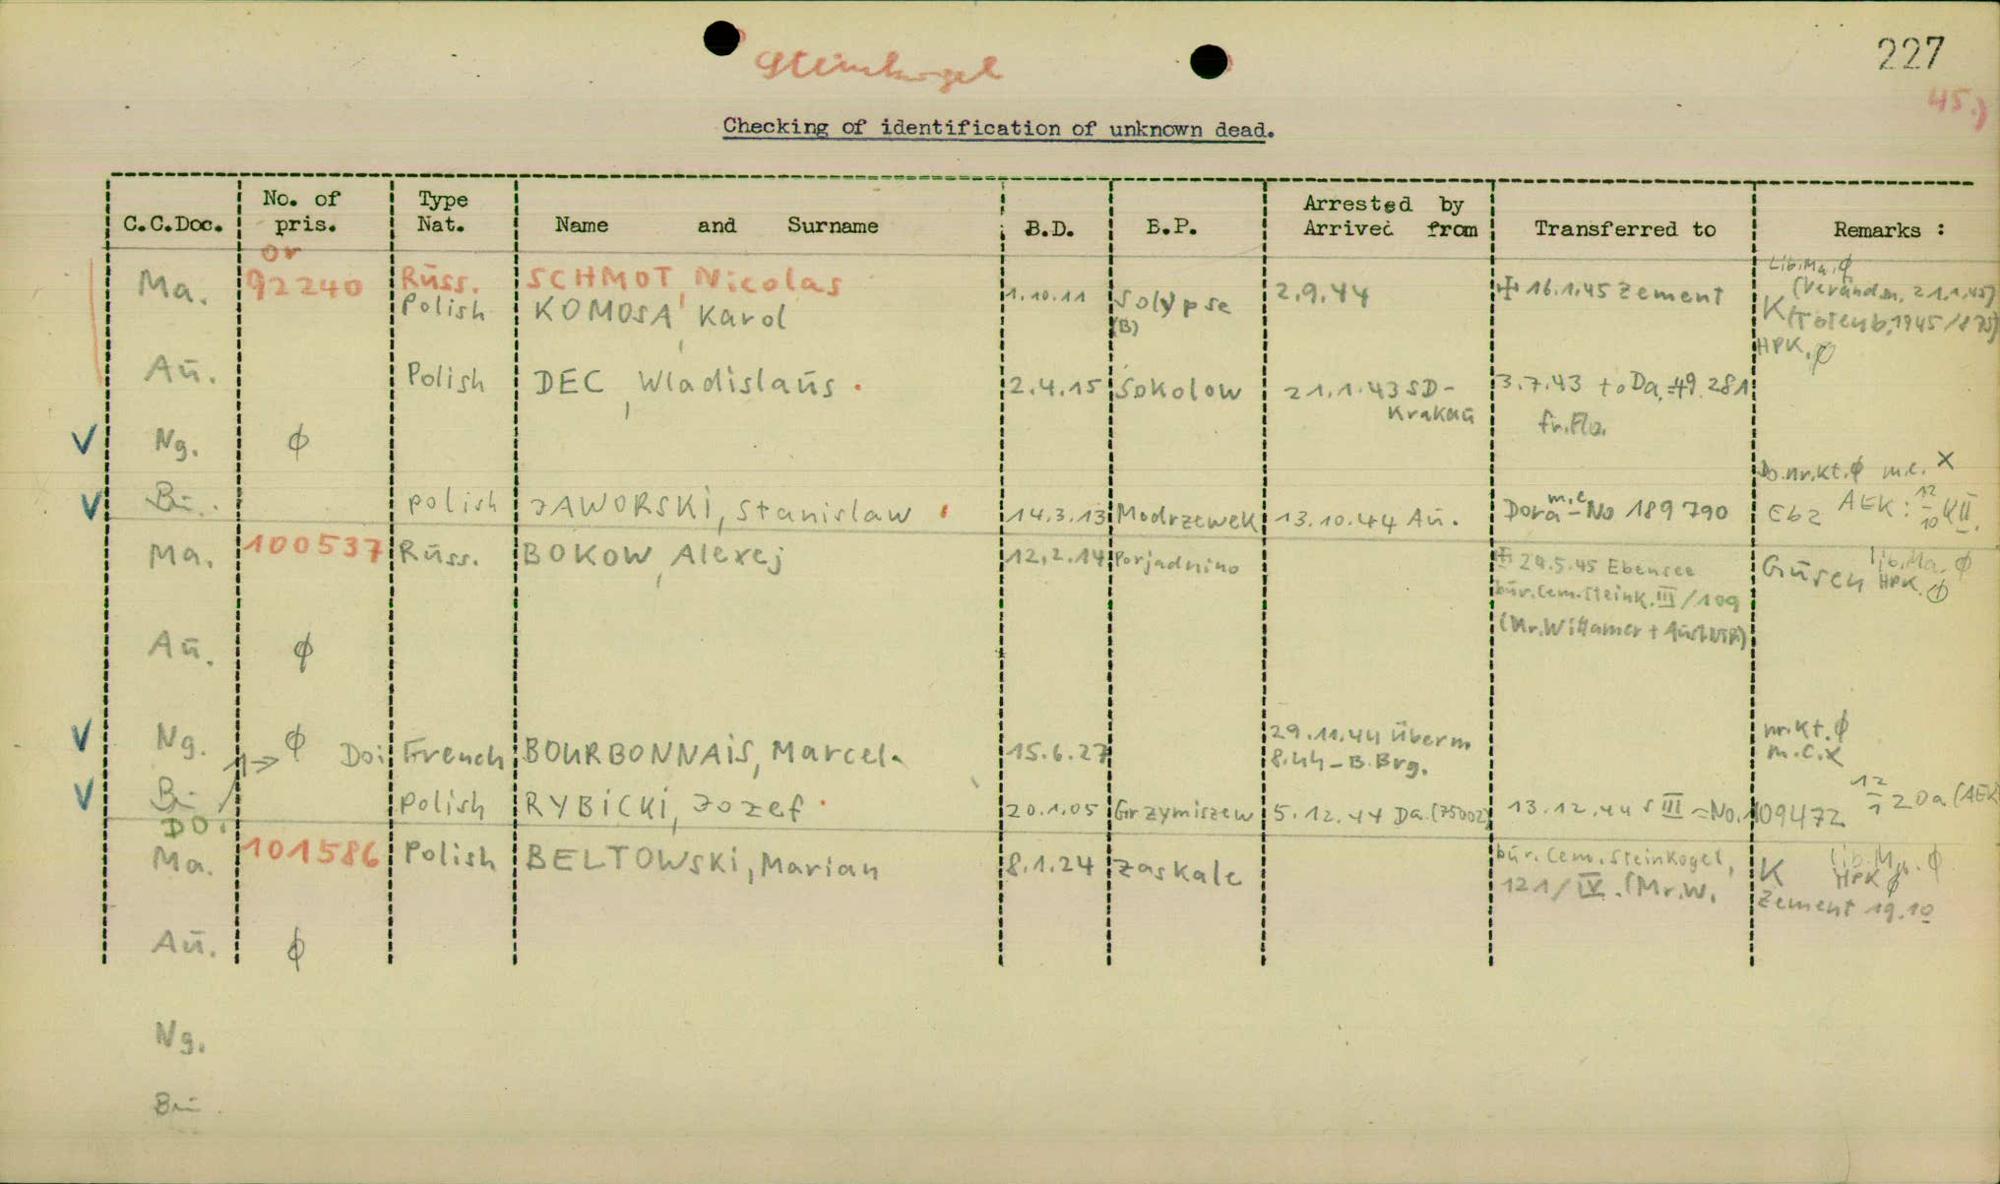 Steinkogel
227
45.)
Checking of identification of unknown dead.
C.C.Doc. No. of pris. Type Nat. Name and Surname B.D. B.P. Arrested by Arrived from Transferred to Remarks :
or
Ma. 92240 Rūss. SCHMOT, Nicolas
Polish KOMOSA, Karol 1.10.11 Solypse (B) 2.9.44 16.1.45 Zement
Lib.Ma. ϕ
(Verändm, 21.1.45)
K (Totenb, 1945/875)
HPK. ϕ
Aū. Polish DEC, Wladislaūs. 2.4.15 Sokolow 21.1.43 SD-Krakaū 3.7.43 to Da. 49.281
fr. Flo.
Ng. ϕ
Do.nr.kt. ϕ m.c. X
Bū. polish JAWORSKI, Stanislaw 14.3.13 Modrzewek 13.10.44 Aū. Dora m.c – No 189790 Ebz AEK: 12/10 KII.
Ma. 100537 Rūss. BOKOW, Alexej 12.2.14 Porjadnino 29.5.45 Ebensee
būr. Cem. Steink. III/109
(Mr. Willamer +
Gūsen lib.Ma. ϕ
HPK. ϕ
Aū. ϕ
Ng. ϕ Do: French BOURBONNAIS, Marcel. 15.6.27 29.11.44 überm
8.44 – B.Brg.
nr.kt. ϕ
m.c.x
Bū. polish RYBICKI, Jozef 20.1.05 Grzymiszew 5.12.44 Da. (75002) 13.12.44 S III = No. 109472 12/1 z Da. (AEK)
DO.
Ma. 101586 Polish BELTOWSKI, Marian 8.1.24 Zaskale būr. Cem. Steinkogel,
121/IV. (Mr.W.
K lib.Ma. ϕ
HPK ϕ
Zement 19.10
Aū. ϕ
Ng.
Bū.